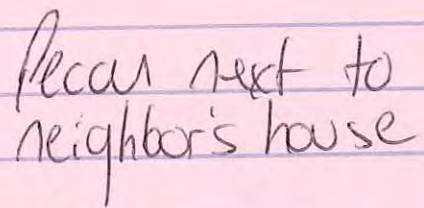 Pecan next to
neighbor's house